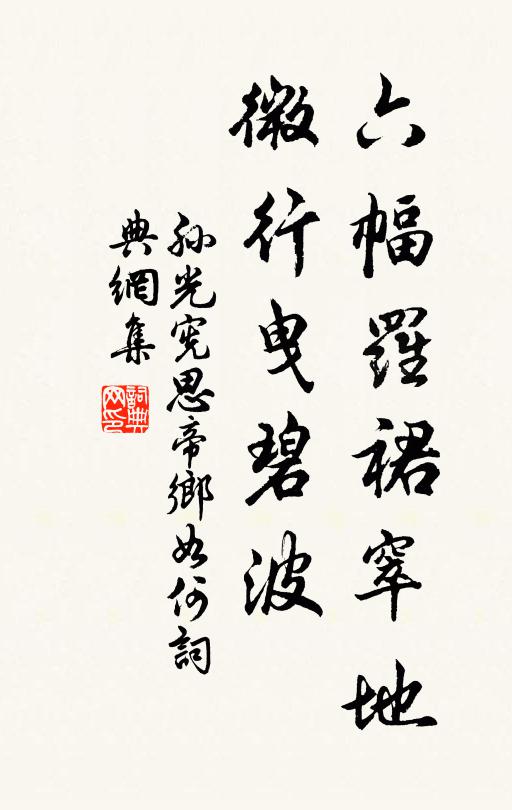 六幅羅裙窣地
微行曳碧波
孫光憲思帝鄉如何詞
典網集
詞典
网印